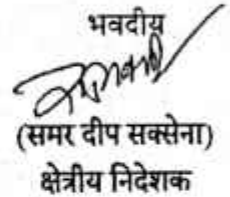 भवदीय
(समर दीप सक्सेना)
क्षेत्रीय निदेशक